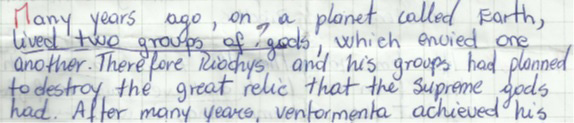 Many years ago, on, a planet called Earth,
lived two groups of gods, which envied one
another. Therefore Riochys, and his groups had planned
to destroy the great relic that the supreme gods
had. After many years, ventormenta achieved his